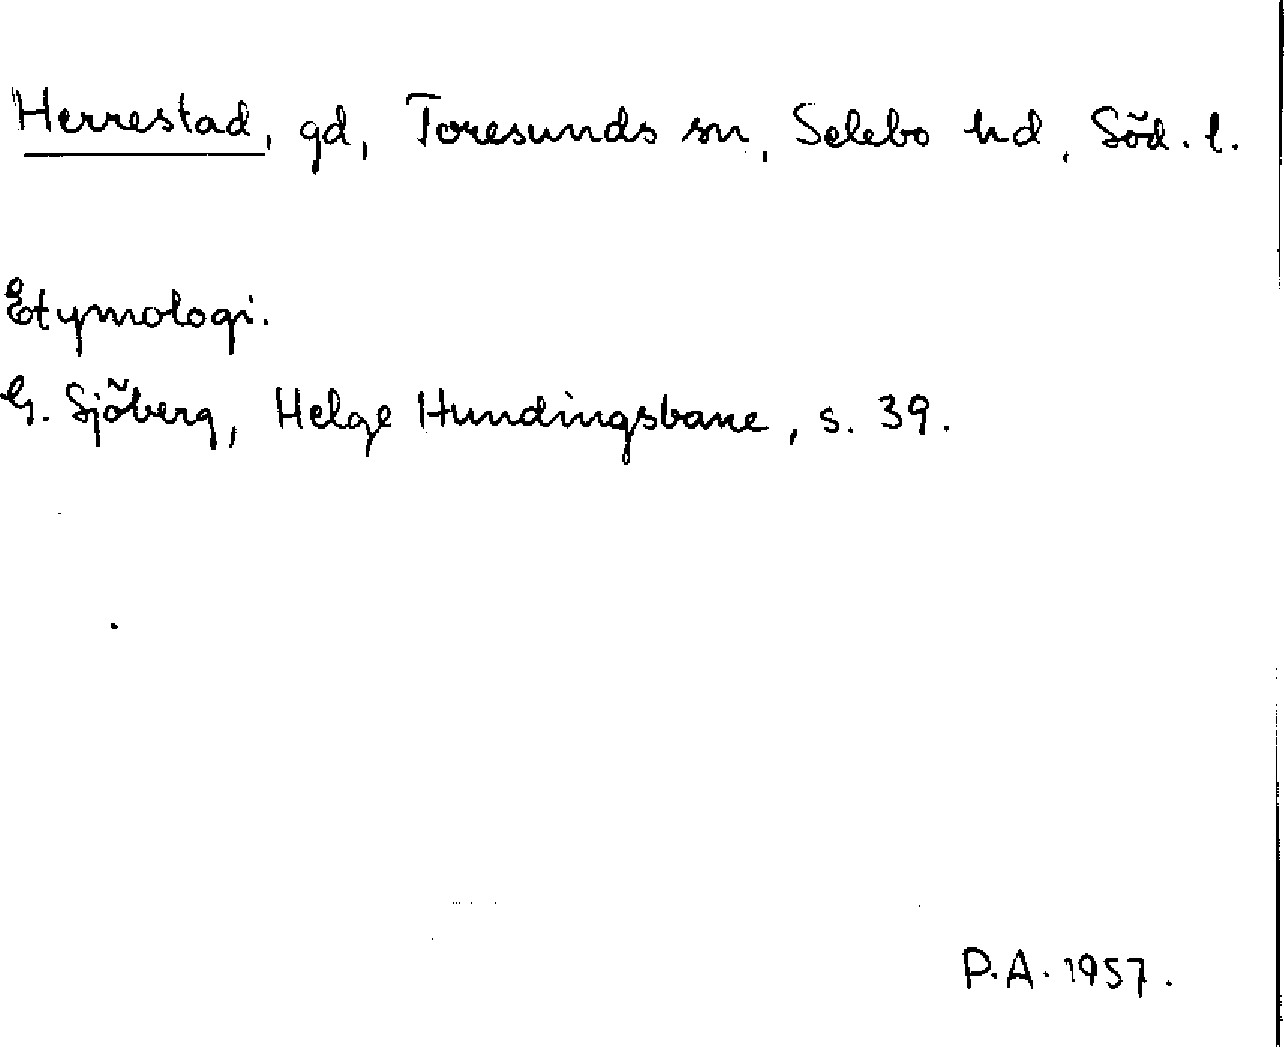 Herrestad, gd, Toresunds sn, Selebo hd, Söd. l.
Etymologi.
G. Sjöberg, Helge Hundingsbane, s. 39.
P.A. 1957.